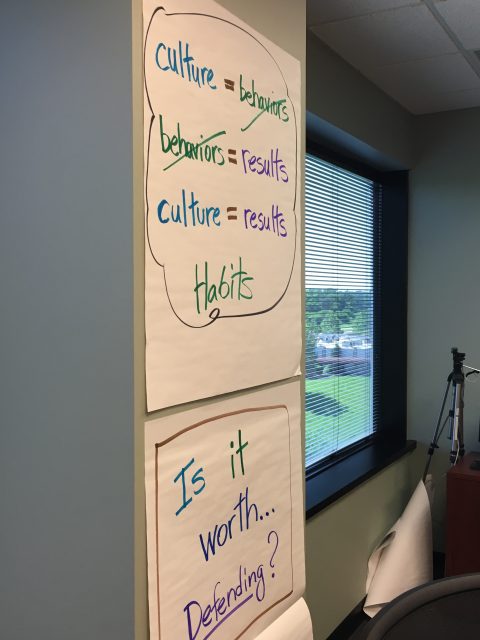 culture = behaviors
behaviors = results
culture = results
Habits
Is it
worth...
Defending?